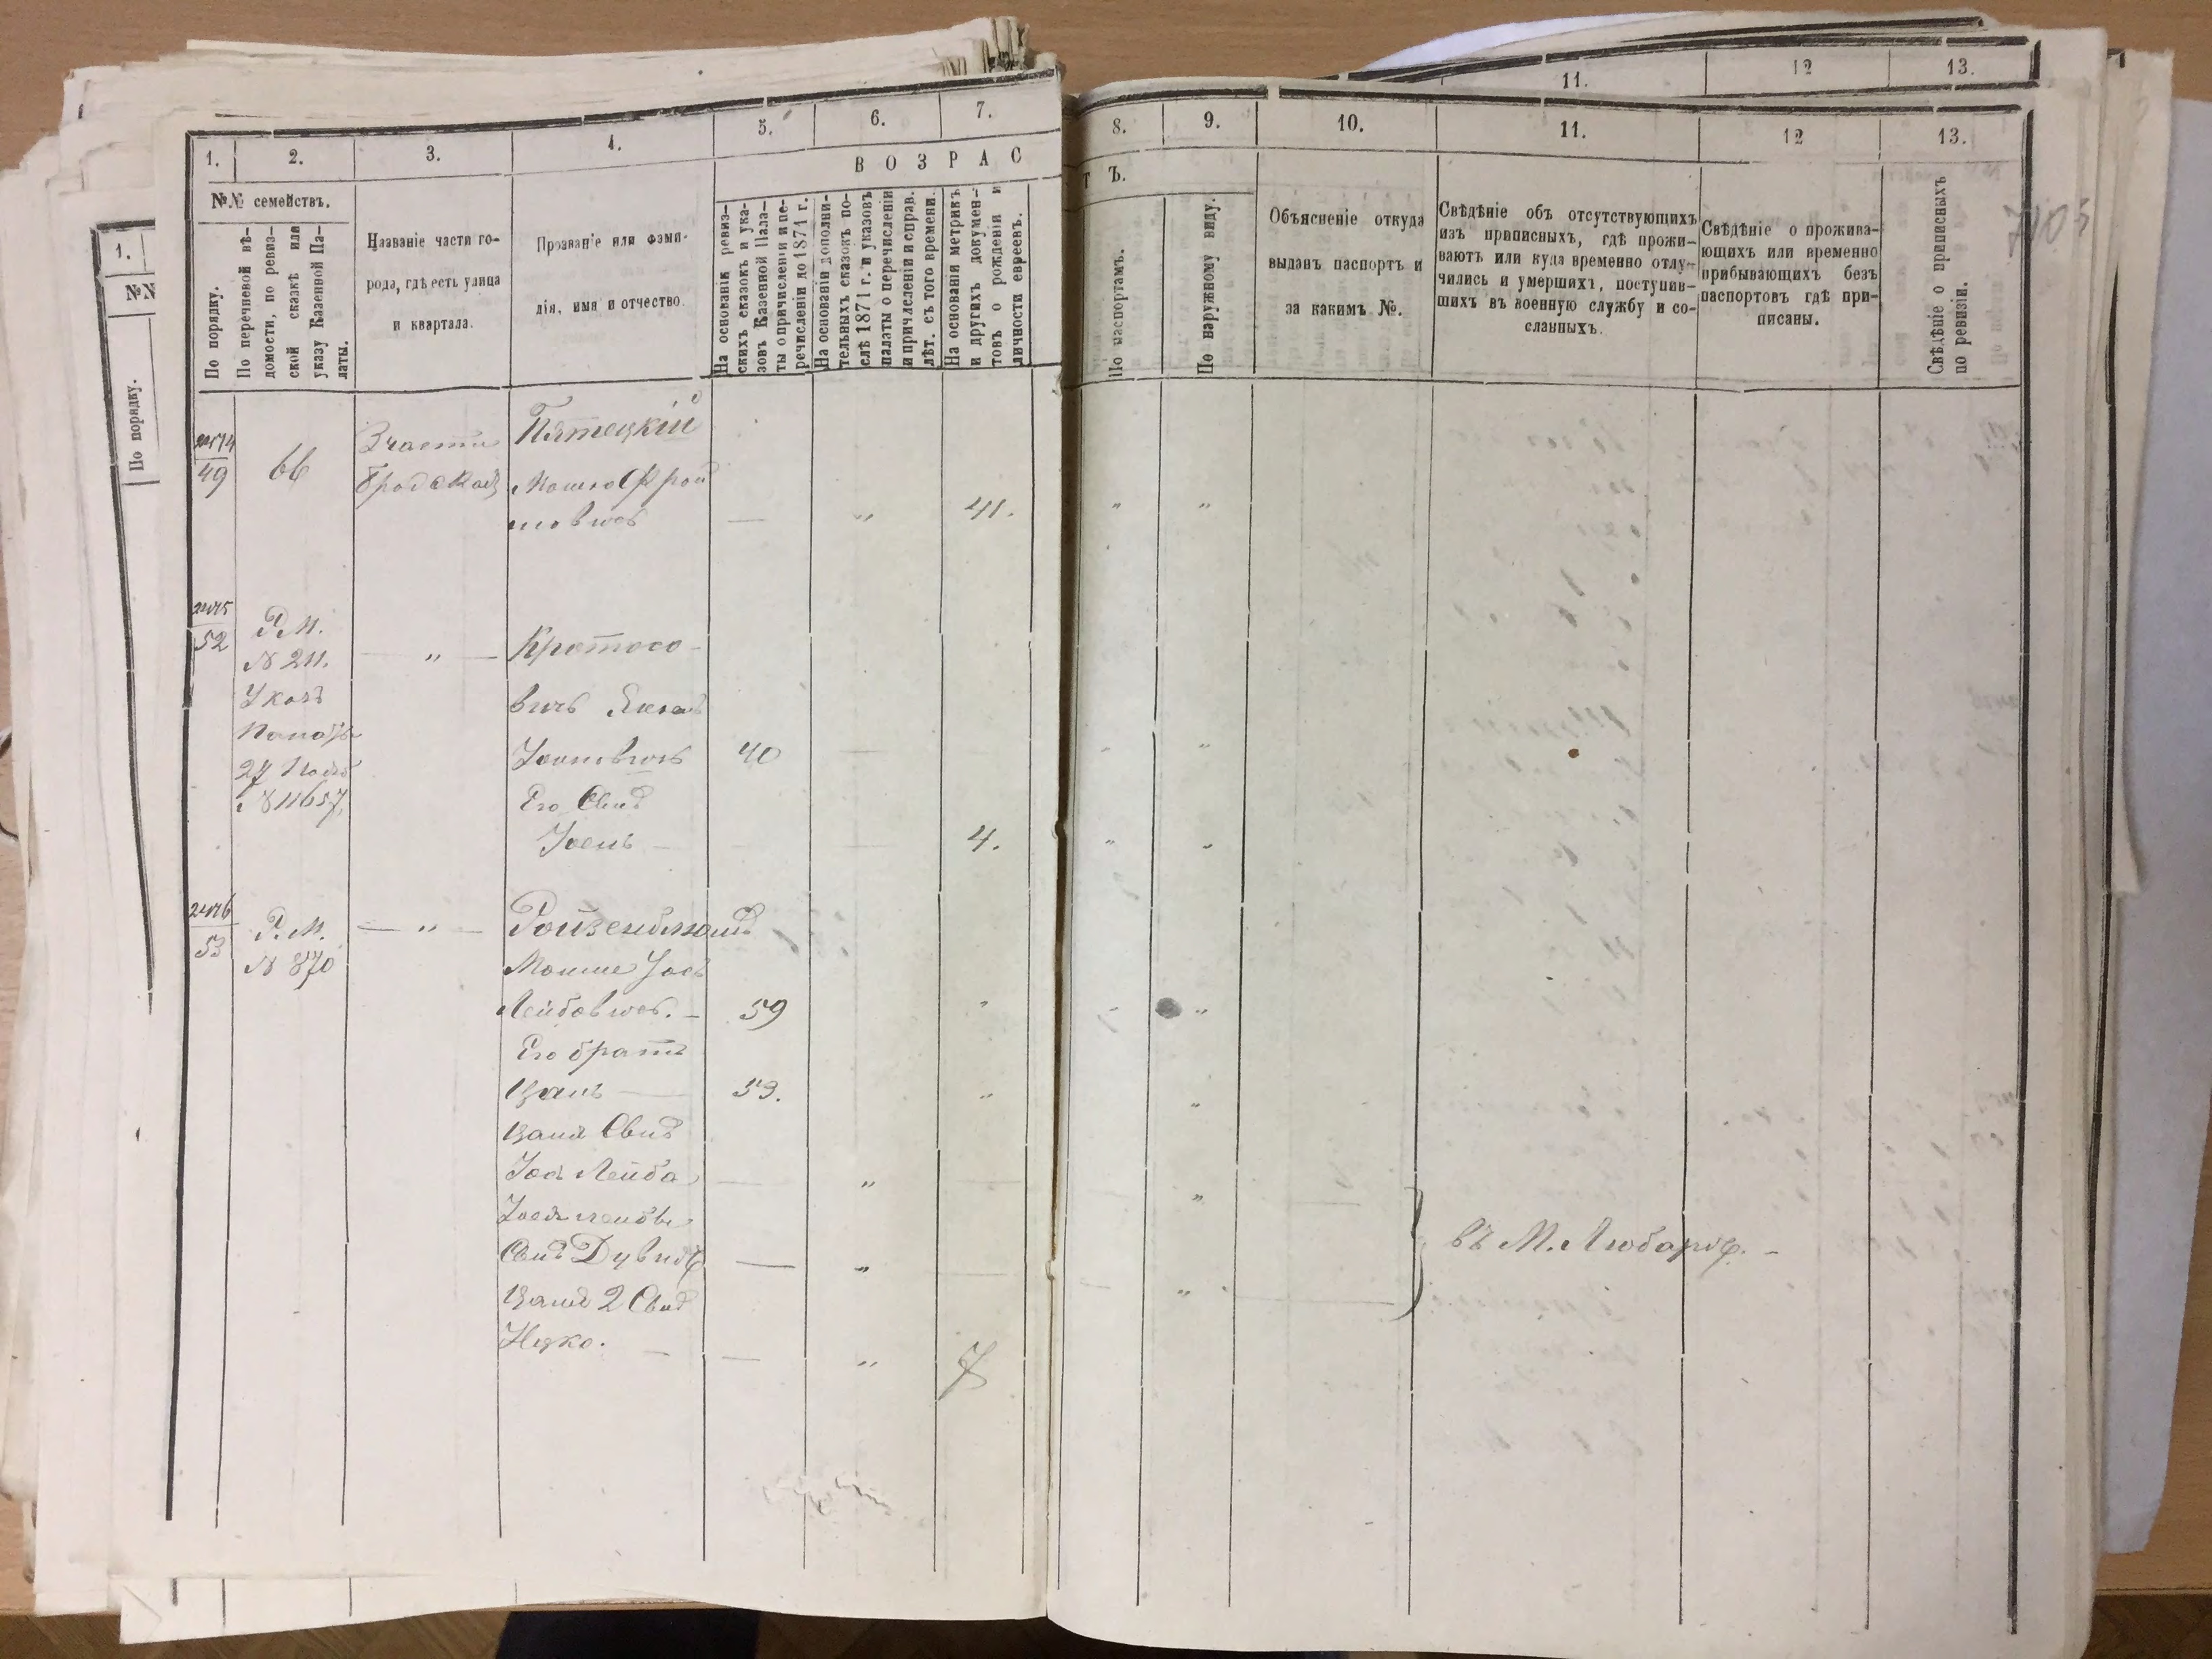 11.
12
13.
1.
2.
3.
4.
5.
6.
7.
8.
9.
10.
11.
12
13.
В О З Р А С
Т Ъ.
№№ семействъ.
По порядку.
По перечневой вѣ-
домости, по ревиз-
ской сказкѣ или
указу Казенной Па-
латы.
Названіе части го-
рода, гдѣ есть улица
и квартала.
Прозваніе или фами-
лія, имя и отчество.
На основаніи ревиз-
скихъ сказокъ и ука-
зовъ Казенной Пала-
ты о причисленіи и пе-
речисленіи до 1871 г.
На основаніи дополни-
тельныхъ сказокъ по-
слѣ 1871 г. и указовъ
палаты о перечисленіи
и причисленіи и справ.
лѣт. съ того времени.
На основаніи метрикъ
и другихъ докумен-
товъ о рожденіи и
личности евреевъ.
По паспортамъ.
По наружному виду.
Объясненіе откуда
выданъ паспортъ и
за какимъ №.
Свѣдѣніе объ отсутствующихъ
изъ приписныхъ, гдѣ прожи-
ваютъ или куда временно отлу-
чились и умершихъ, поступив-
шихъ въ военную службу и со-
сланныхъ.
Свѣдѣніе о прожива-
ющихъ или временно
прибывающихъ безъ
паспортовъ гдѣ при-
писаны.
Свѣдѣніе о приписныхъ
по ревизіи.
1.
№№
По порядку.
49
66
3 части
Бродской
Пятецкій
Мошко Фрой
мовичъ
41.
52
Р. М.
№ 211.
Указъ
Палаты
№ 11657
Кротосо-
вичъ
40
Его Сынъ
Іось
4.
53
Р. М.
№ 870
Ройзенблитъ
Мошце Іось
Лейбовичъ.
59
Его братъ
53.
Сынъ
Іось Лейба
Сынъ Дувидъ
2 Сынъ
Ицко.
7
въ М. Любарѣ.